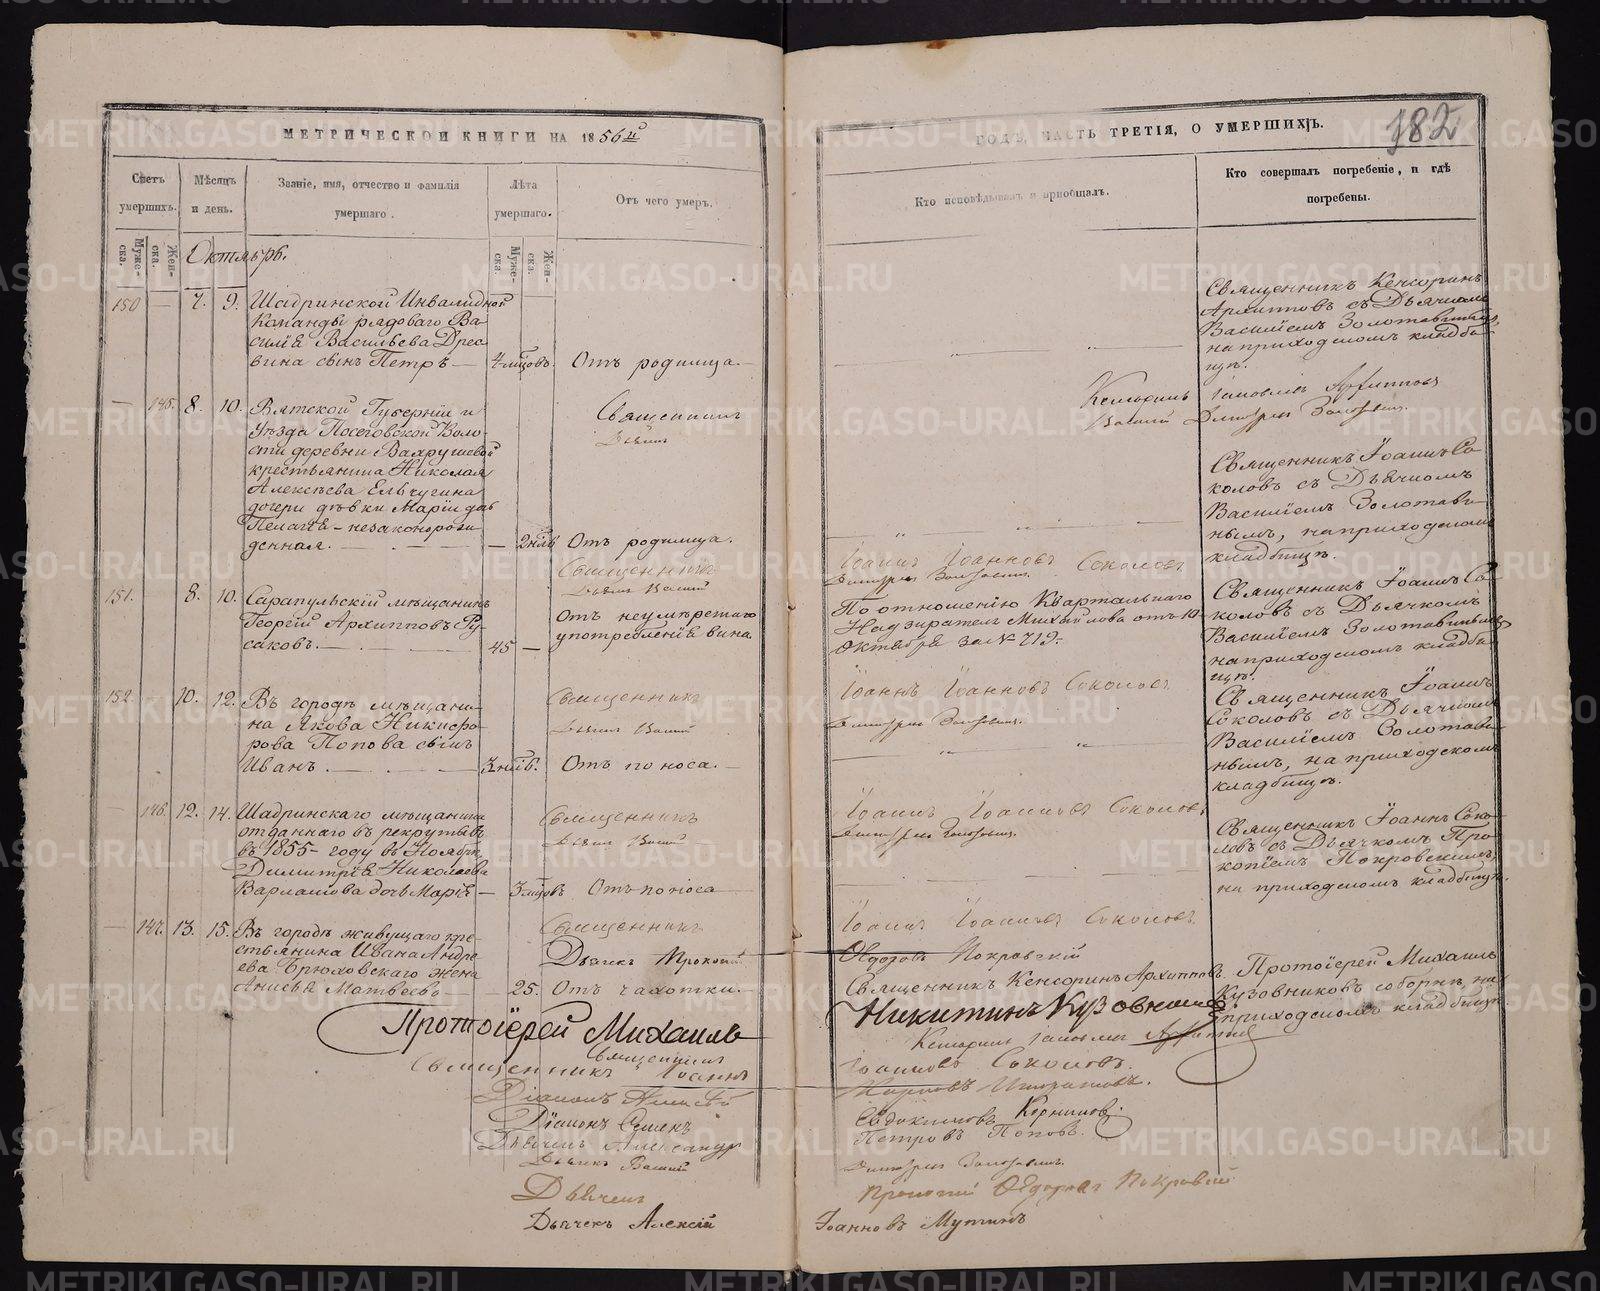 МЕТРИЧЕСКОЙ КНИГИ НА 1856й
ГОДЪ, ЧАСТЬ ТРЕТІЯ, О УМЕРШИХЪ.
182
Счетъ умершихъ.
Муже-ска.
Жен-ска.
Мѣсяцъ и день.
Званіе, имя, отчество и фамилія умершаго.
Лѣта умершаго.
Муже-ска.
Жен-ска.
Отъ чего умеръ.
Кто исповѣдывалъ и пріобщалъ.
Кто совершалъ погребеніе, и гдѣ погребены.
Октябрь.
150 — 7. 9.
Шадринской Инвалидной
Команды рядоваго Ва-
силія Васильева
сынъ Петръ —
4 мцовъ.
Отъ родимца. —
Священникъ Кенсоринъ
Архиповъ съ Дьячкомъ
Василіемъ Золотавинымъ,
на приходскомъ кладби-
щѣ.
— 145. 8. 10.
Вятской Губерніи и
Уѣзда Волос-
сти деревни Вахрушевой
крестьянина Николая
Алексѣева Ельчугина
дочери дѣвки Маріи дочь
Пелагія — незаконорож-
денная. —
— 2 нед.
Отъ родимца.
Священникъ
Дьячекъ
Кенсоринъ Архиповъ
Василій Дмитріевъ Золотавинъ.
Священникъ Іоаннъ Со-
коловъ съ Дьячкомъ
Василіемъ Золотави-
нымъ, на приходскомъ
кладбищѣ.
151. 8. 10.
Сарапульскій мѣщанинъ
Георгій Архипповъ Ру-
саковъ. —
45 —
Отъ неумѣреннаго
употребленія вина.
Священникъ
Дьячекъ Василій
Іоаннъ Іоанновъ Соколовъ
Дмитріевъ Золотавинъ.
По отношенію Квартальнаго
Надзирателя Михайлова отъ 10
Октября за № 719.
Священникъ Іоаннъ Со-
коловъ съ Дьячкомъ
Василіемъ Золотавинымъ,
на приходскомъ кладби-
щѣ.
152 — 10. 12.
Въ городѣ мѣщани-
на Якова Никифо-
рова Попова сынъ
Иванъ. —
3 нед.
Отъ поноса. —
Священникъ
Дьячекъ Василій
Іоаннъ Іоанновъ Соколовъ
Дмитріевъ Золотавинъ.
Священникъ Іоаннъ
Соколовъ съ Дьячкомъ
Василіемъ Золотави-
нымъ, на приходскомъ
кладбищѣ.
— 146. 12. 14.
Шадринскаго мѣщанина
отданнаго въ рекруты
въ 1855 году въ Ноябрѣ
Димитрія Николаева
Варлакова дочь Марія —
3 мцовъ
Отъ поноса
Священникъ
Дьячекъ Василій
Іоаннъ Іоанновъ Соколовъ
Дмитріевъ Золотавинъ.
Священникъ Іоаннъ Соко-
ловъ съ Дьячкомъ Про-
копіемъ Покровскимъ,
на приходскомъ кладбищѣ.
— 147. 13. 15.
Въ городѣ живущаго кре-
стьянина Ивана Андре-
ева Брюховскаго жена
Анисья Матвѣева —
25.
Отъ чахотки. —
Священникъ
Дьячекъ Прокопій
Іоаннъ Іоанновъ Соколовъ
Ѳедоровъ Покровскій
Священникъ Кенсоринъ Архипповъ.
Протоіерей Михаилъ
Кузовниковъ соборнѣ, на
приходскомъ кладбищѣ
Протоіерей Михаилъ Никитинъ Кузовниковъ
Священникъ
Кенсоринъ Архиповъ
Священникъ Іоаннъ Іоанновъ Соколовъ.
Діаконъ Алексѣй
Діаконъ Семенъ Евдокимовъ Корниловъ.
Дьячекъ Александръ Петровъ Поповъ.
Дьячекъ Василій Дмитріевъ Золотавинъ.
Дьячекъ Прокопій Ѳедоровъ Покровскій
Дьячекъ Алексій Іоанновъ Мутинъ
METRIKI.GASO-URAL.RU